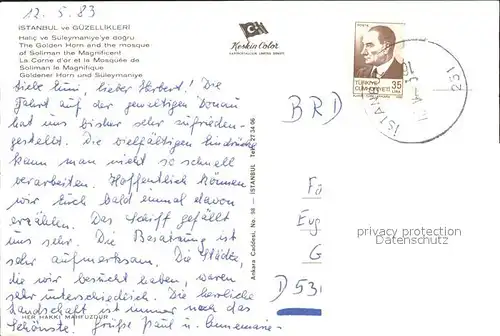 12. 5. 83
İSTANBUL ve GÜZELLİKLERİ
Haliç ve Süleymaniye'ye doğru
The Golden Horn and the mosque
of Soliman the Magnificent
La Corne d'or et la Mosquée de
Soliman le Magnifique
Goldener Horn und Süleymaniye
Keskin Color
POSTA
TÜRKİYE
CUMHURİYETİ
35
LİRA
İSTANBUL
lieber Herbert! Die
Fahrt auf der gewaltigen Donau
hat uns bisher sehr zufrieden-
gestellt. Die vielfältigen Eindrücke
kann man nicht so schnell
verarbeiten. Hoffentlich können
wir Euch bald einmal davon
erzählen. Das Schiff gefällt
uns sehr. Die Besatzung ist
sehr aufmerksam. Die Städte,
die wir besucht haben, waren
sehr unterschiedlich. Die herrliche
Landschaft ist immer noch das
Schönste. Grüße Paul u. Annemarie
HER HAKKI MAHFUZDUR
Ankara Caddesi, No. 98 — İSTANBUL
BRD
Fa
Eug
G
D 531
privacy protection
Datenschutz